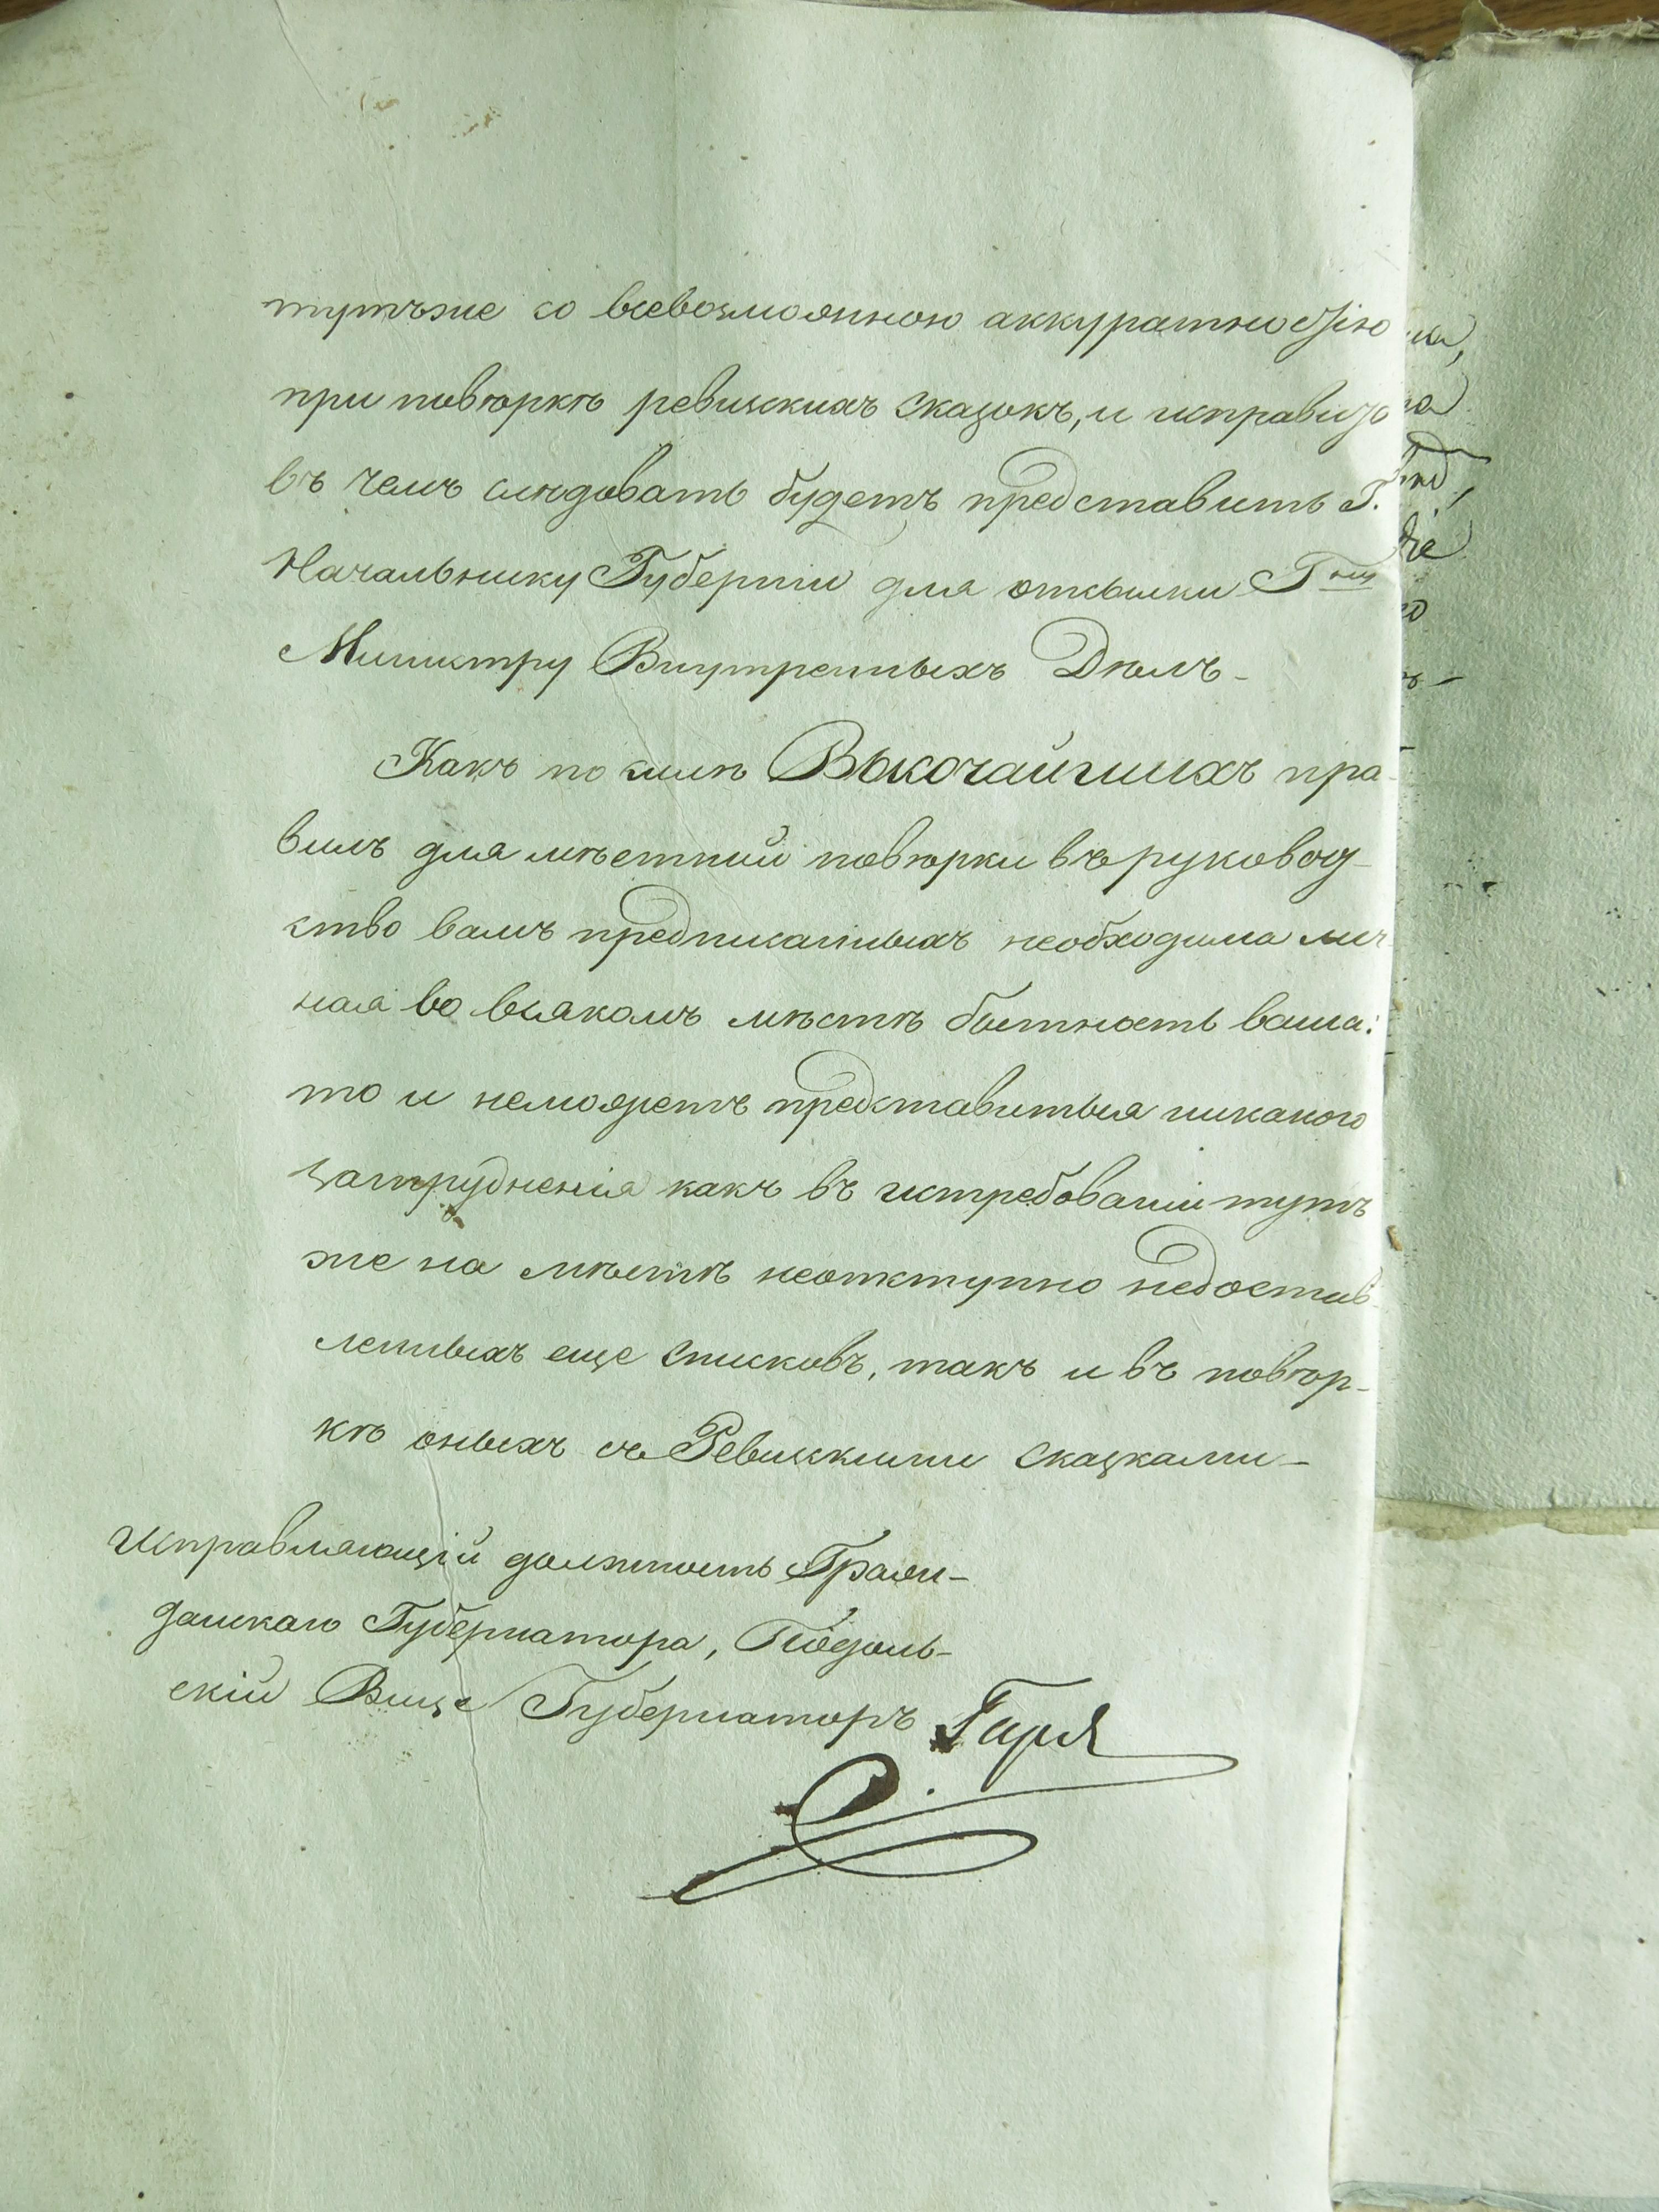 тутъже со всевозможною аккуратностію
при повѣркѣ ревискихъ сказокъ, и исправивъ
въ чемъ слѣдовать будетъ представить Г.
Начальнику Губерніи для отсылки Гну
Министру Внутреннихъ Дѣлъ-
Какъ по силѣ Высочайшихъ пра-
вилъ для мѣстной повѣрки въ руковод-
ство вамъ предписанныхъ необходима лич-
ная во всякомъ мѣстѣ бытность ваша:
то и неможетъ представиться никакого
затрудненія какъ въ истребованіи тутъ
же на мѣстѣ неотступно недостав-
ленныхъ еще списковъ, такъ и въ повѣр-
кѣ оныхъ съ Ревискими сказками-
Исправляющій должность Граж-
данскаго Губернатора, Подоль-
скій Вице Губернаторъ